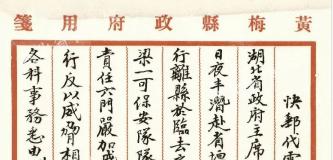 黃梅縣政府用箋
快郵代電
湖北省政府主席
日夜半潛赴者
行離縣於臨去
梁一可保安隊隊
責任六門嚴加
行反以威脅相
各科事務悉由